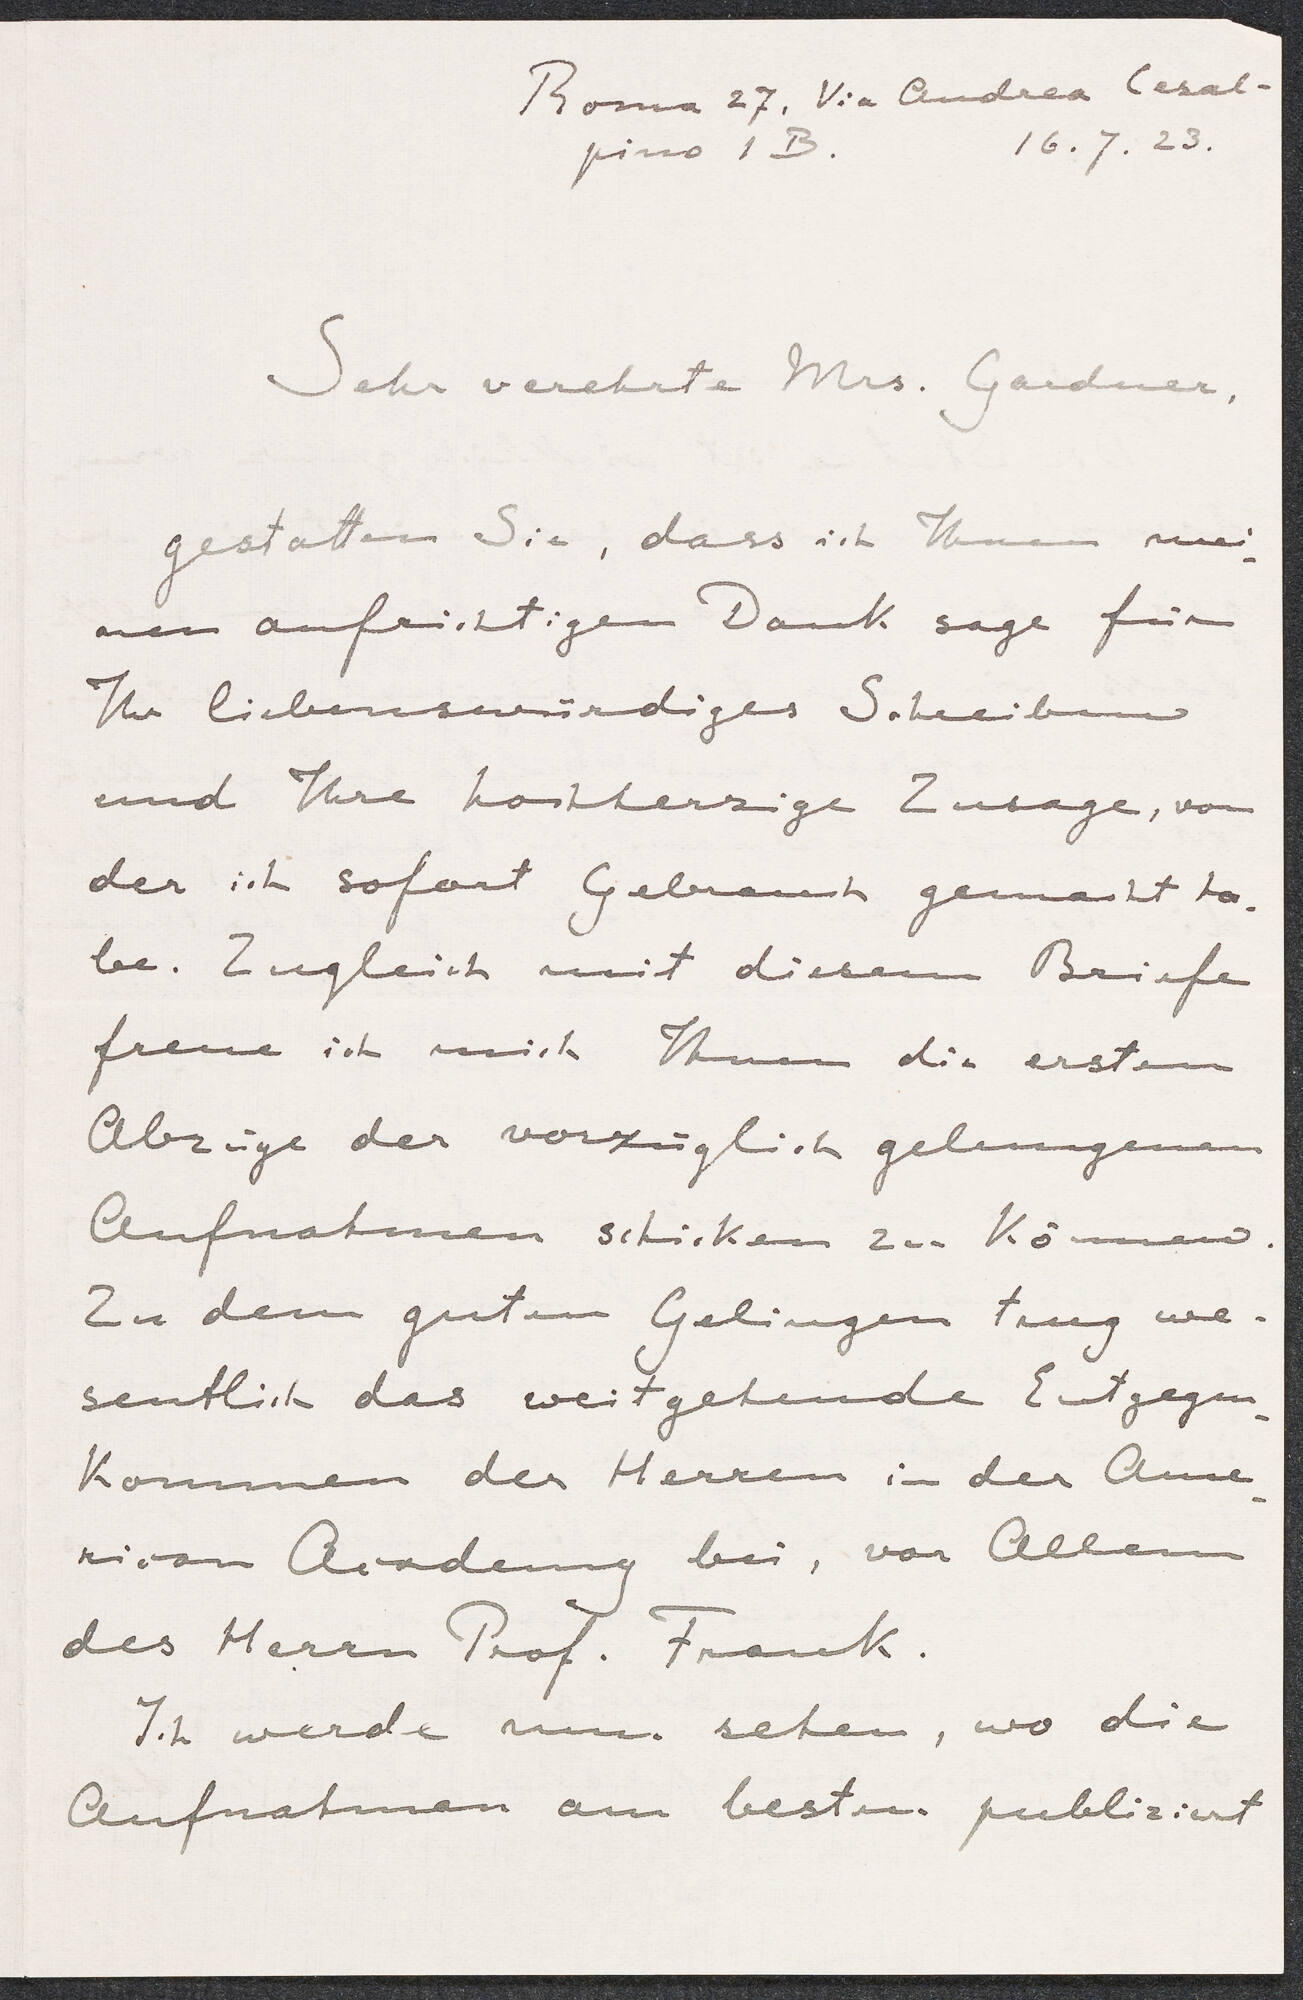 Roma 27, Via Andrea Cesal-
pino 1 B. 16. 7. 23.
Sehr verehrte Mrs. Gardner,
gestatten Sie, dass ich Ihnen mei-
nen aufrichtigen Dank sage für
Ihr liebenswürdiges Schreiben
und Ihre hochherzige Zusage, von
der ich sofort Gebrauch gemacht ha-
be. Zugleich mit diesem Briefe
freue ich mich Ihnen die ersten
Abzüge der vorzüglich gelungenen
Aufnahmen schicken zu können.
Zu dem guten Gelingen trug we-
sentlich das weitgehende Entgegen-
kommen der Herren in der Ame-
rican Academy bei, vor Allem
des Herrn Prof. Frank.
Ich werde nun sehen, wo die
Aufnahmen am besten publiziert